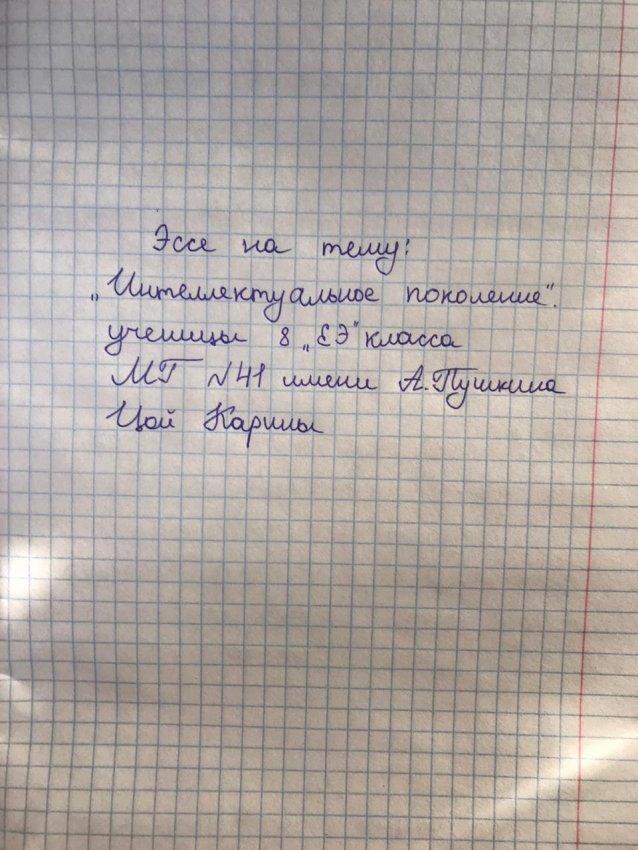 Эссе на тему:
„Интеллектуальное поколение".
ученицы 8 „ЕЭ" класса
МГ №41 имени А.Пушкина
Цой Карины